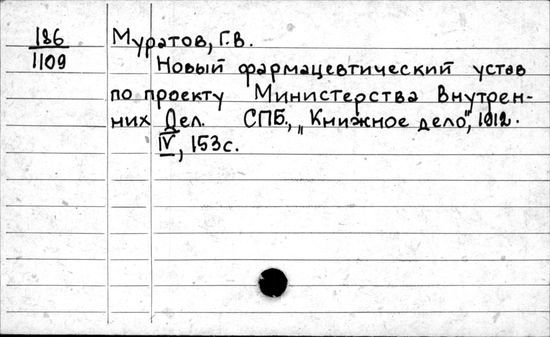 186
1109
Муратов, Г.В.
Новый фармацевтический устав
по проекту Министерства Внутрен-
них Дел. СПБ., "Книжное дело", 1912.
IV, 153 с.